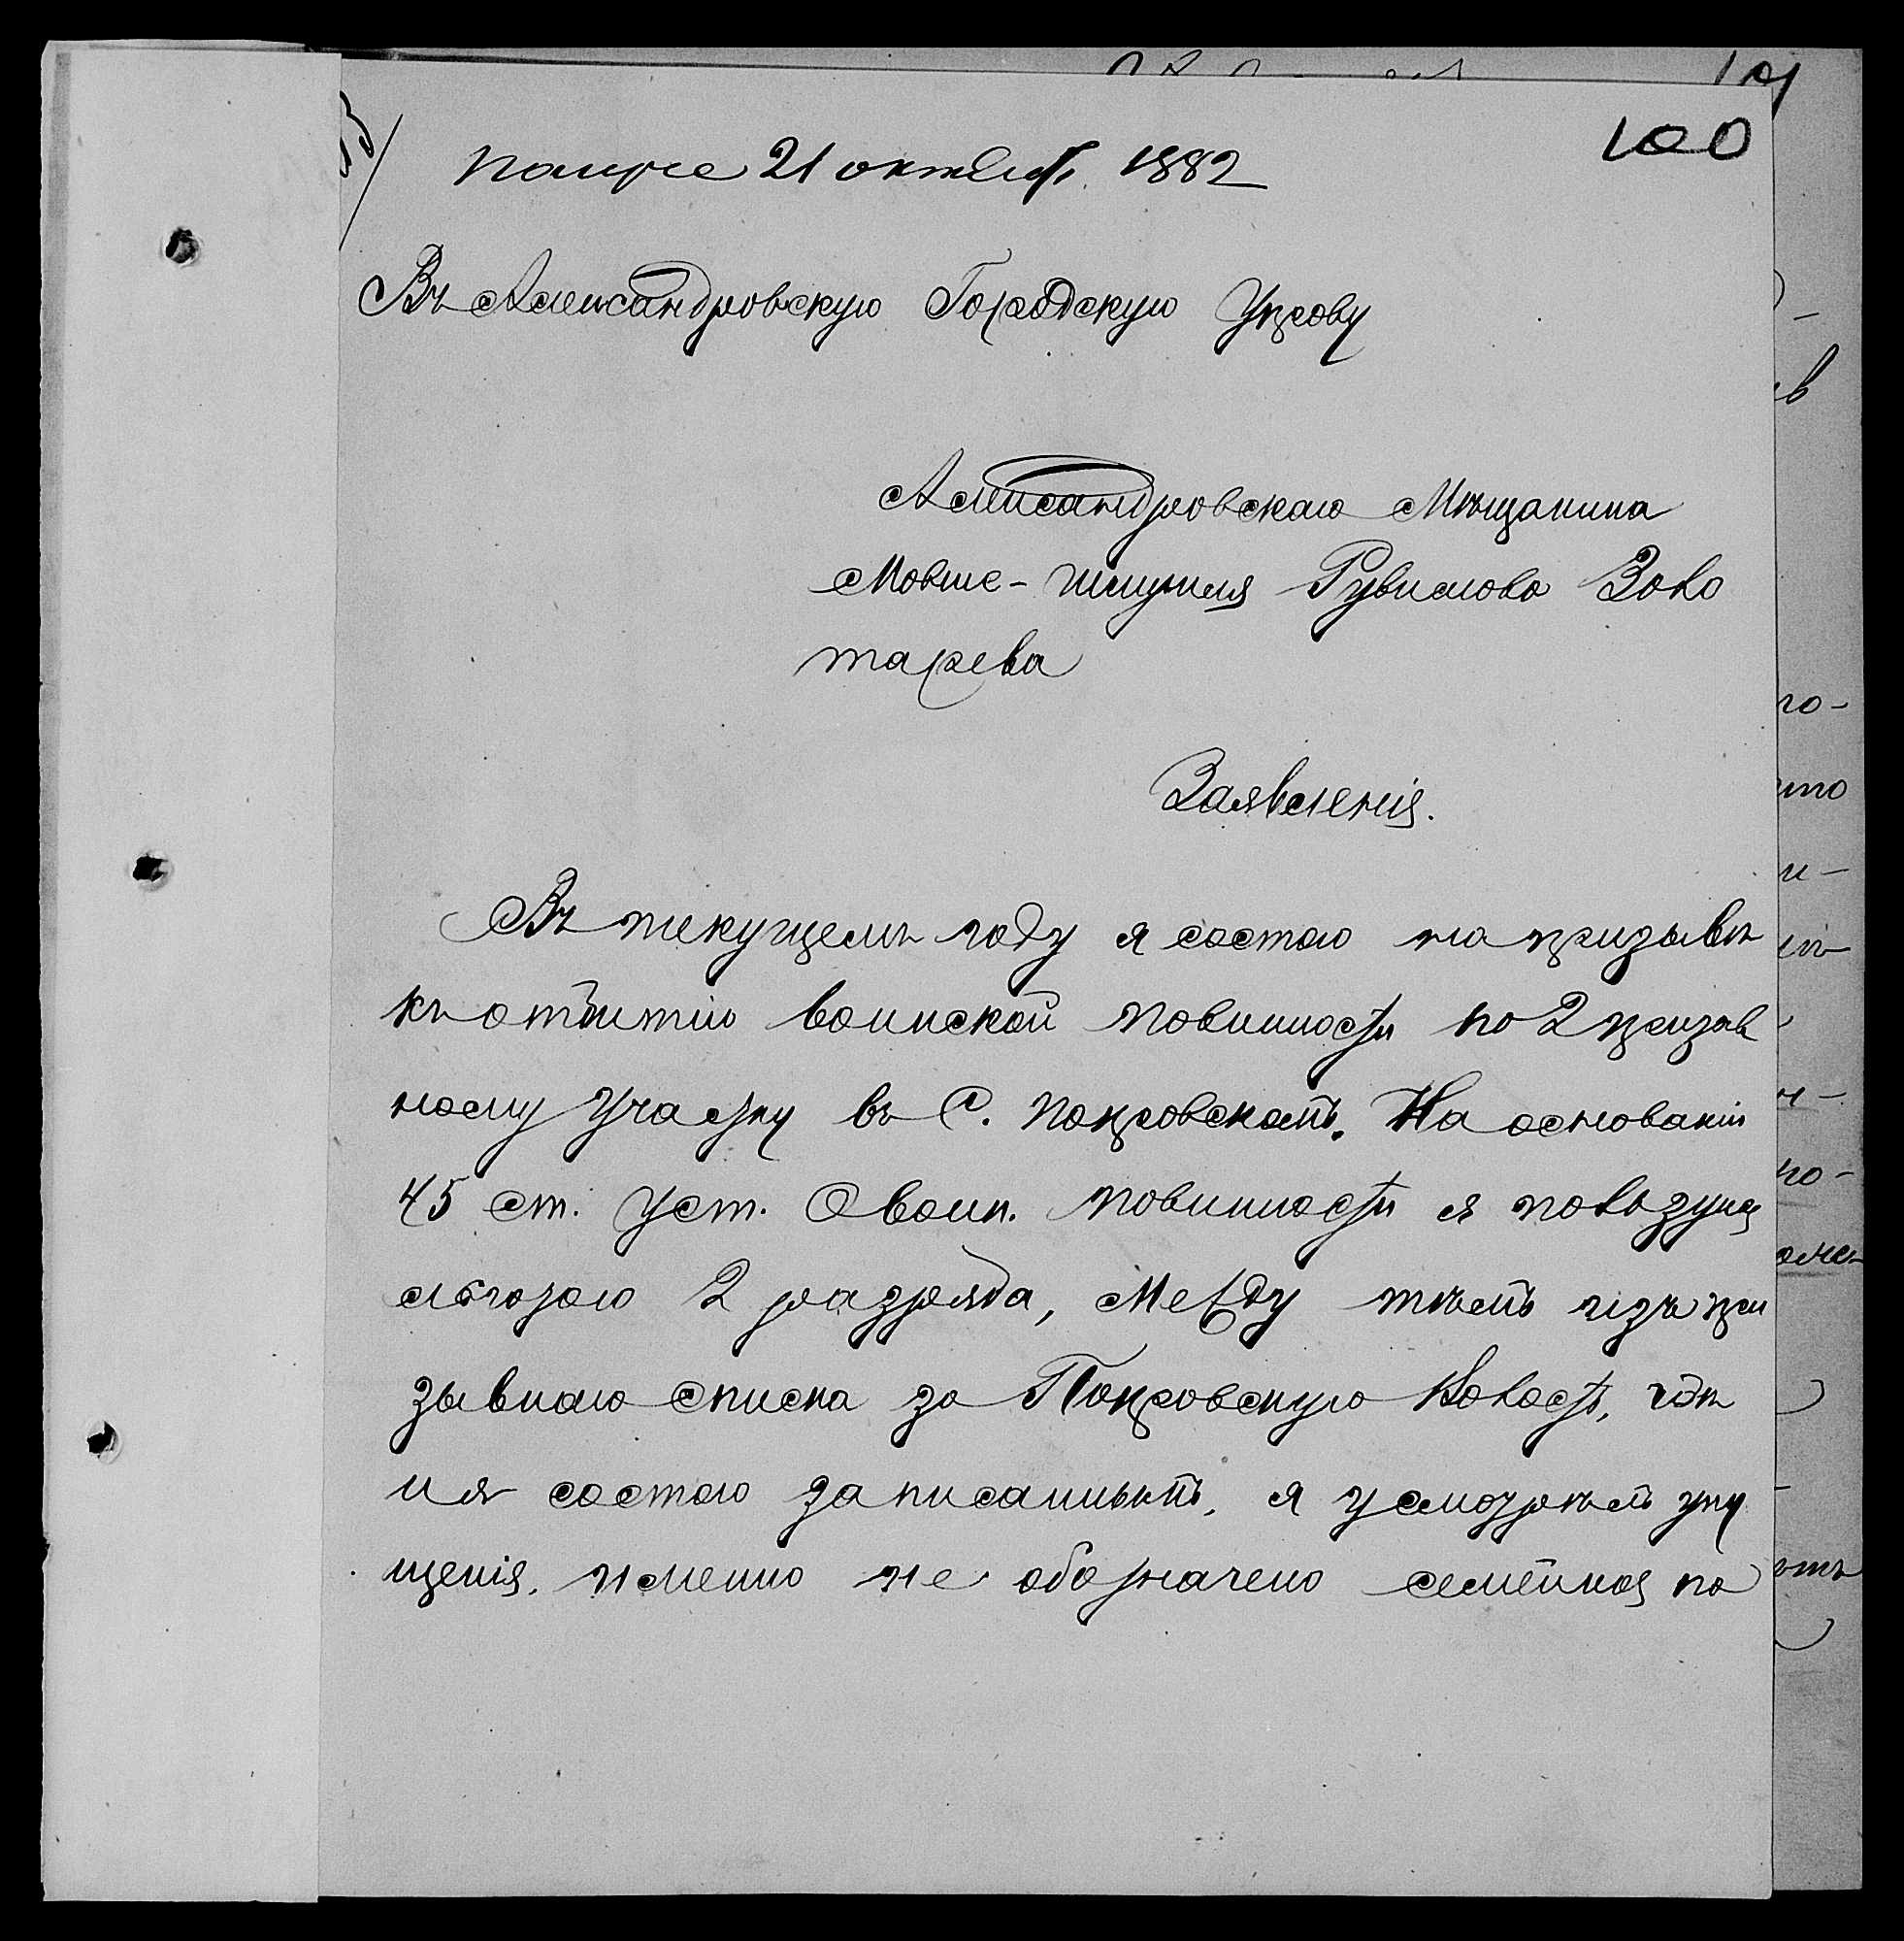 100
21 октября 1882
Въ Александровскую Городскую Управу
Александровскаго Мѣщанина
Мовше-Шмуиля Рувимова Золо
тарева
Заявленія.
Въ текущемъ году я состою на призывѣ
къ отбытію воинской повинности по 2 призыв
ному участку въ С. Покровскомъ. На основаніи
45 ст. Уст. О воин. повинности я пользуюся
льготою 2 разряда, Между тѣмъ изъ при
зывнаго списка за Покровскую волость, гдѣ
и я состою записаннымъ, я усмотрѣлъ упу
щенія, именно не обозначено семейноя по